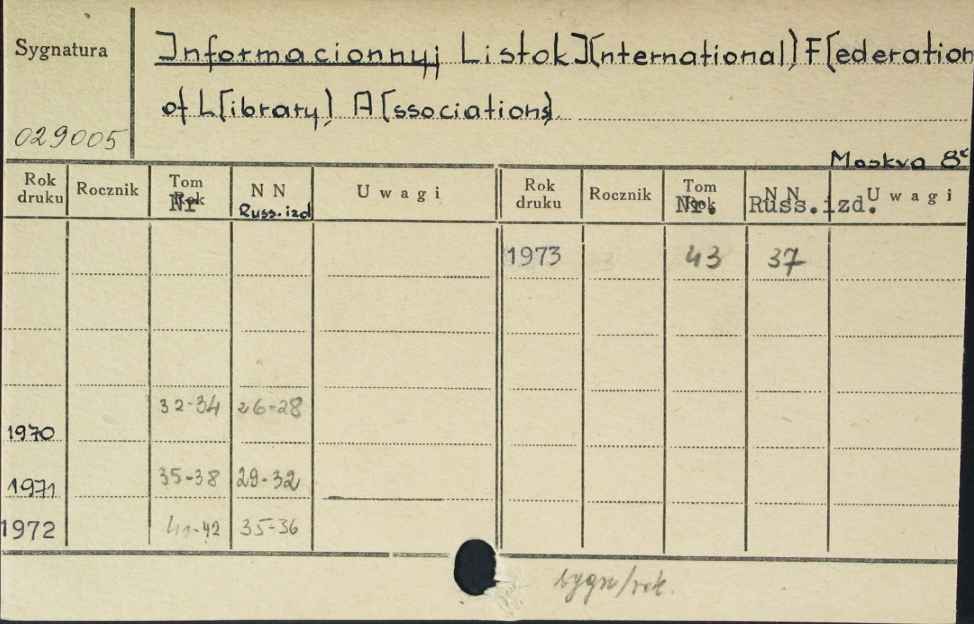 Sygnatura
Informacionnyj Listok I(nternational) F[ederation
of L[ibrary) A[ssociations).
029005
Moskva 8°
Rok druku Rocznik Tom Rok Nr N N Russ.izd Uwagi Rok druku Rocznik Tom Rok Nr. N N Russ.izd. Uwagi
1973 43 37
1970 32-34 26-28
1971 35-38 29-32
1972 41-42 35-36
sygn/rok.